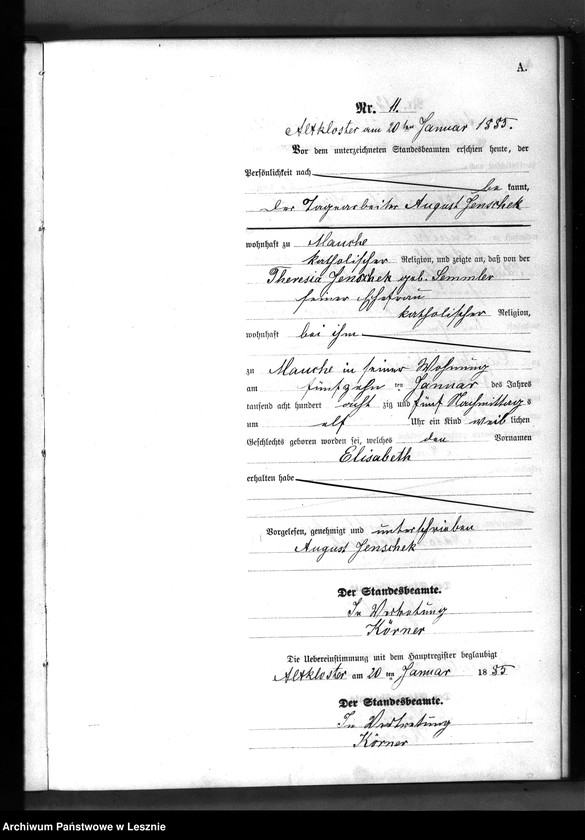 A.
Nr. 11.
Altkloster am 20 ten Januar 1885.
Vor dem unterzeichneten Standesbeamten erschien heute, der
Persönlichkeit nach
be kannt,
der Tagearbeiter August Jenschek
wohnhaft zu Mauche
katholischer Religion, und zeigte an, daß von der
Theresia Jenschek geb. Semmler
seiner Ehefrau
katholischer Religion,
wohnhaft bei ihm
zu Mauche in seiner Wohnung
am fünfzehn ten Januar des Jahres
tausend acht hundert acht zig und fünf Nachmittags
um elf Uhr ein Kind weib lichen
Geschlechts geboren worden sei, welches den Vornamen
Elisabeth
erhalten habe
Vorgelesen, genehmigt und unterschrieben
August Jenschek
Der Standesbeamte.
In Vertretung
Körner
Die Uebereinstimmung mit dem Hauptregister beglaubigt
Altkloster am 20 ten Januar 1885
Der Standesbeamte.
In Vertretung
Körner
Archiwum Państwowe w Lesznie